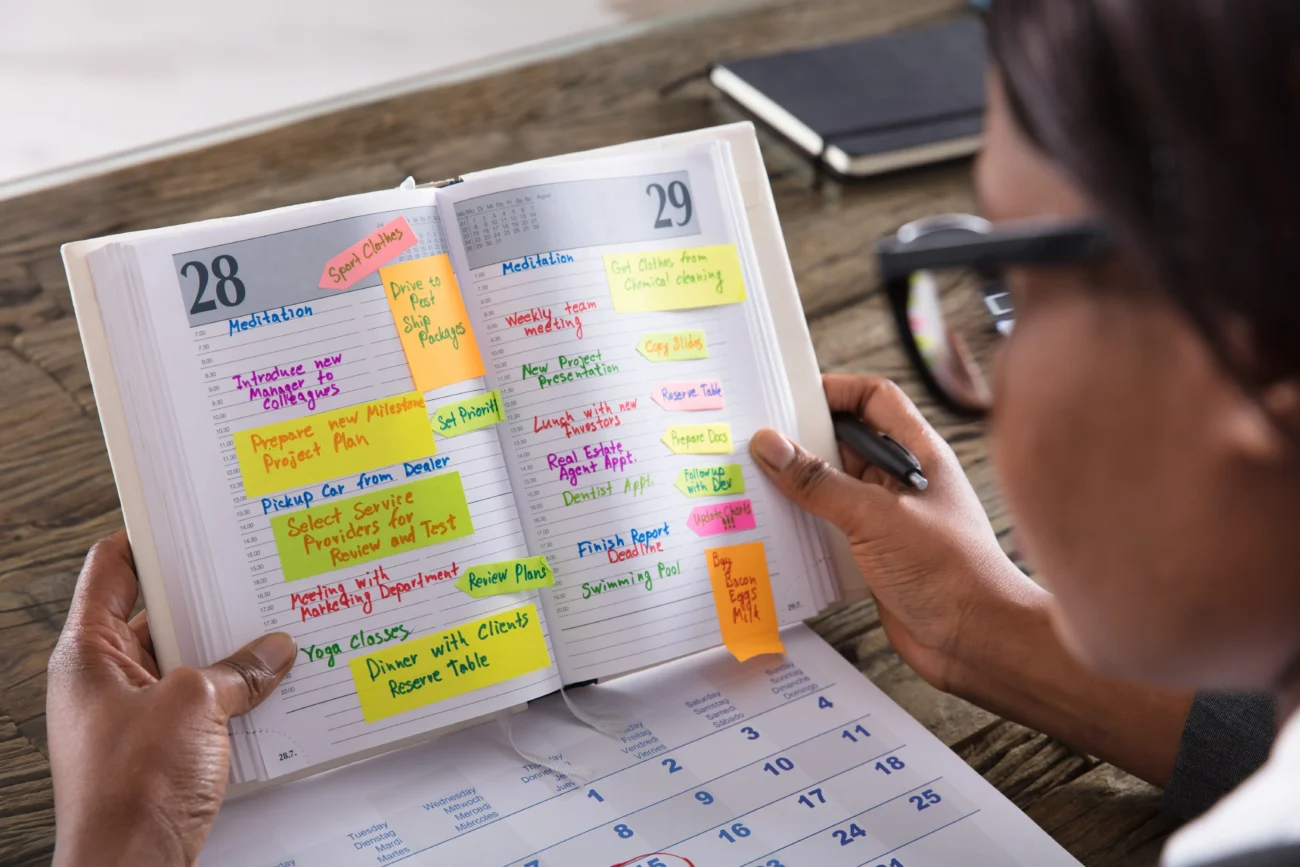 28
Sport Clothes
Meditation
Drive to
Post
Ship
Packages
Introduce new
Manager to
Colleagues
Prepare new Milestone
Project Plan
Set Priority
Pickup Car from Dealer
Select Service
Providers for
Review and Test
Meeting with
Marketing Department
Review Plans
Yoga Classes
Dinner with Clients
Reserve Table
28.7.
29
Meditation
Get Clothes from
Chemical cleaning
Weekly team
meeting
Copy Slides
New Project
Presentation
Reserve Table
Lunch with new
Investors
Prepare Docs
Real Estate
Agent Appt.
Follow up
with Dev
Dentist Appt.
Update Charts
!!!
Finish Report
Deadline
Swimming Pool
Buy
Bacon
Eggs
Milk
29.7.
Tuesday
Dienstag
Mardi
Martes
Wednesday
Mittwoch
Mercredi
Miércoles
Freitag
Vendredi
Viernes
Saturday
Samstag
Samedi
Sábado
Sunday
Sonntag
Dimanche
Domingo
1 2 3 4
8 9 10 11
15 16 17 18
24 25